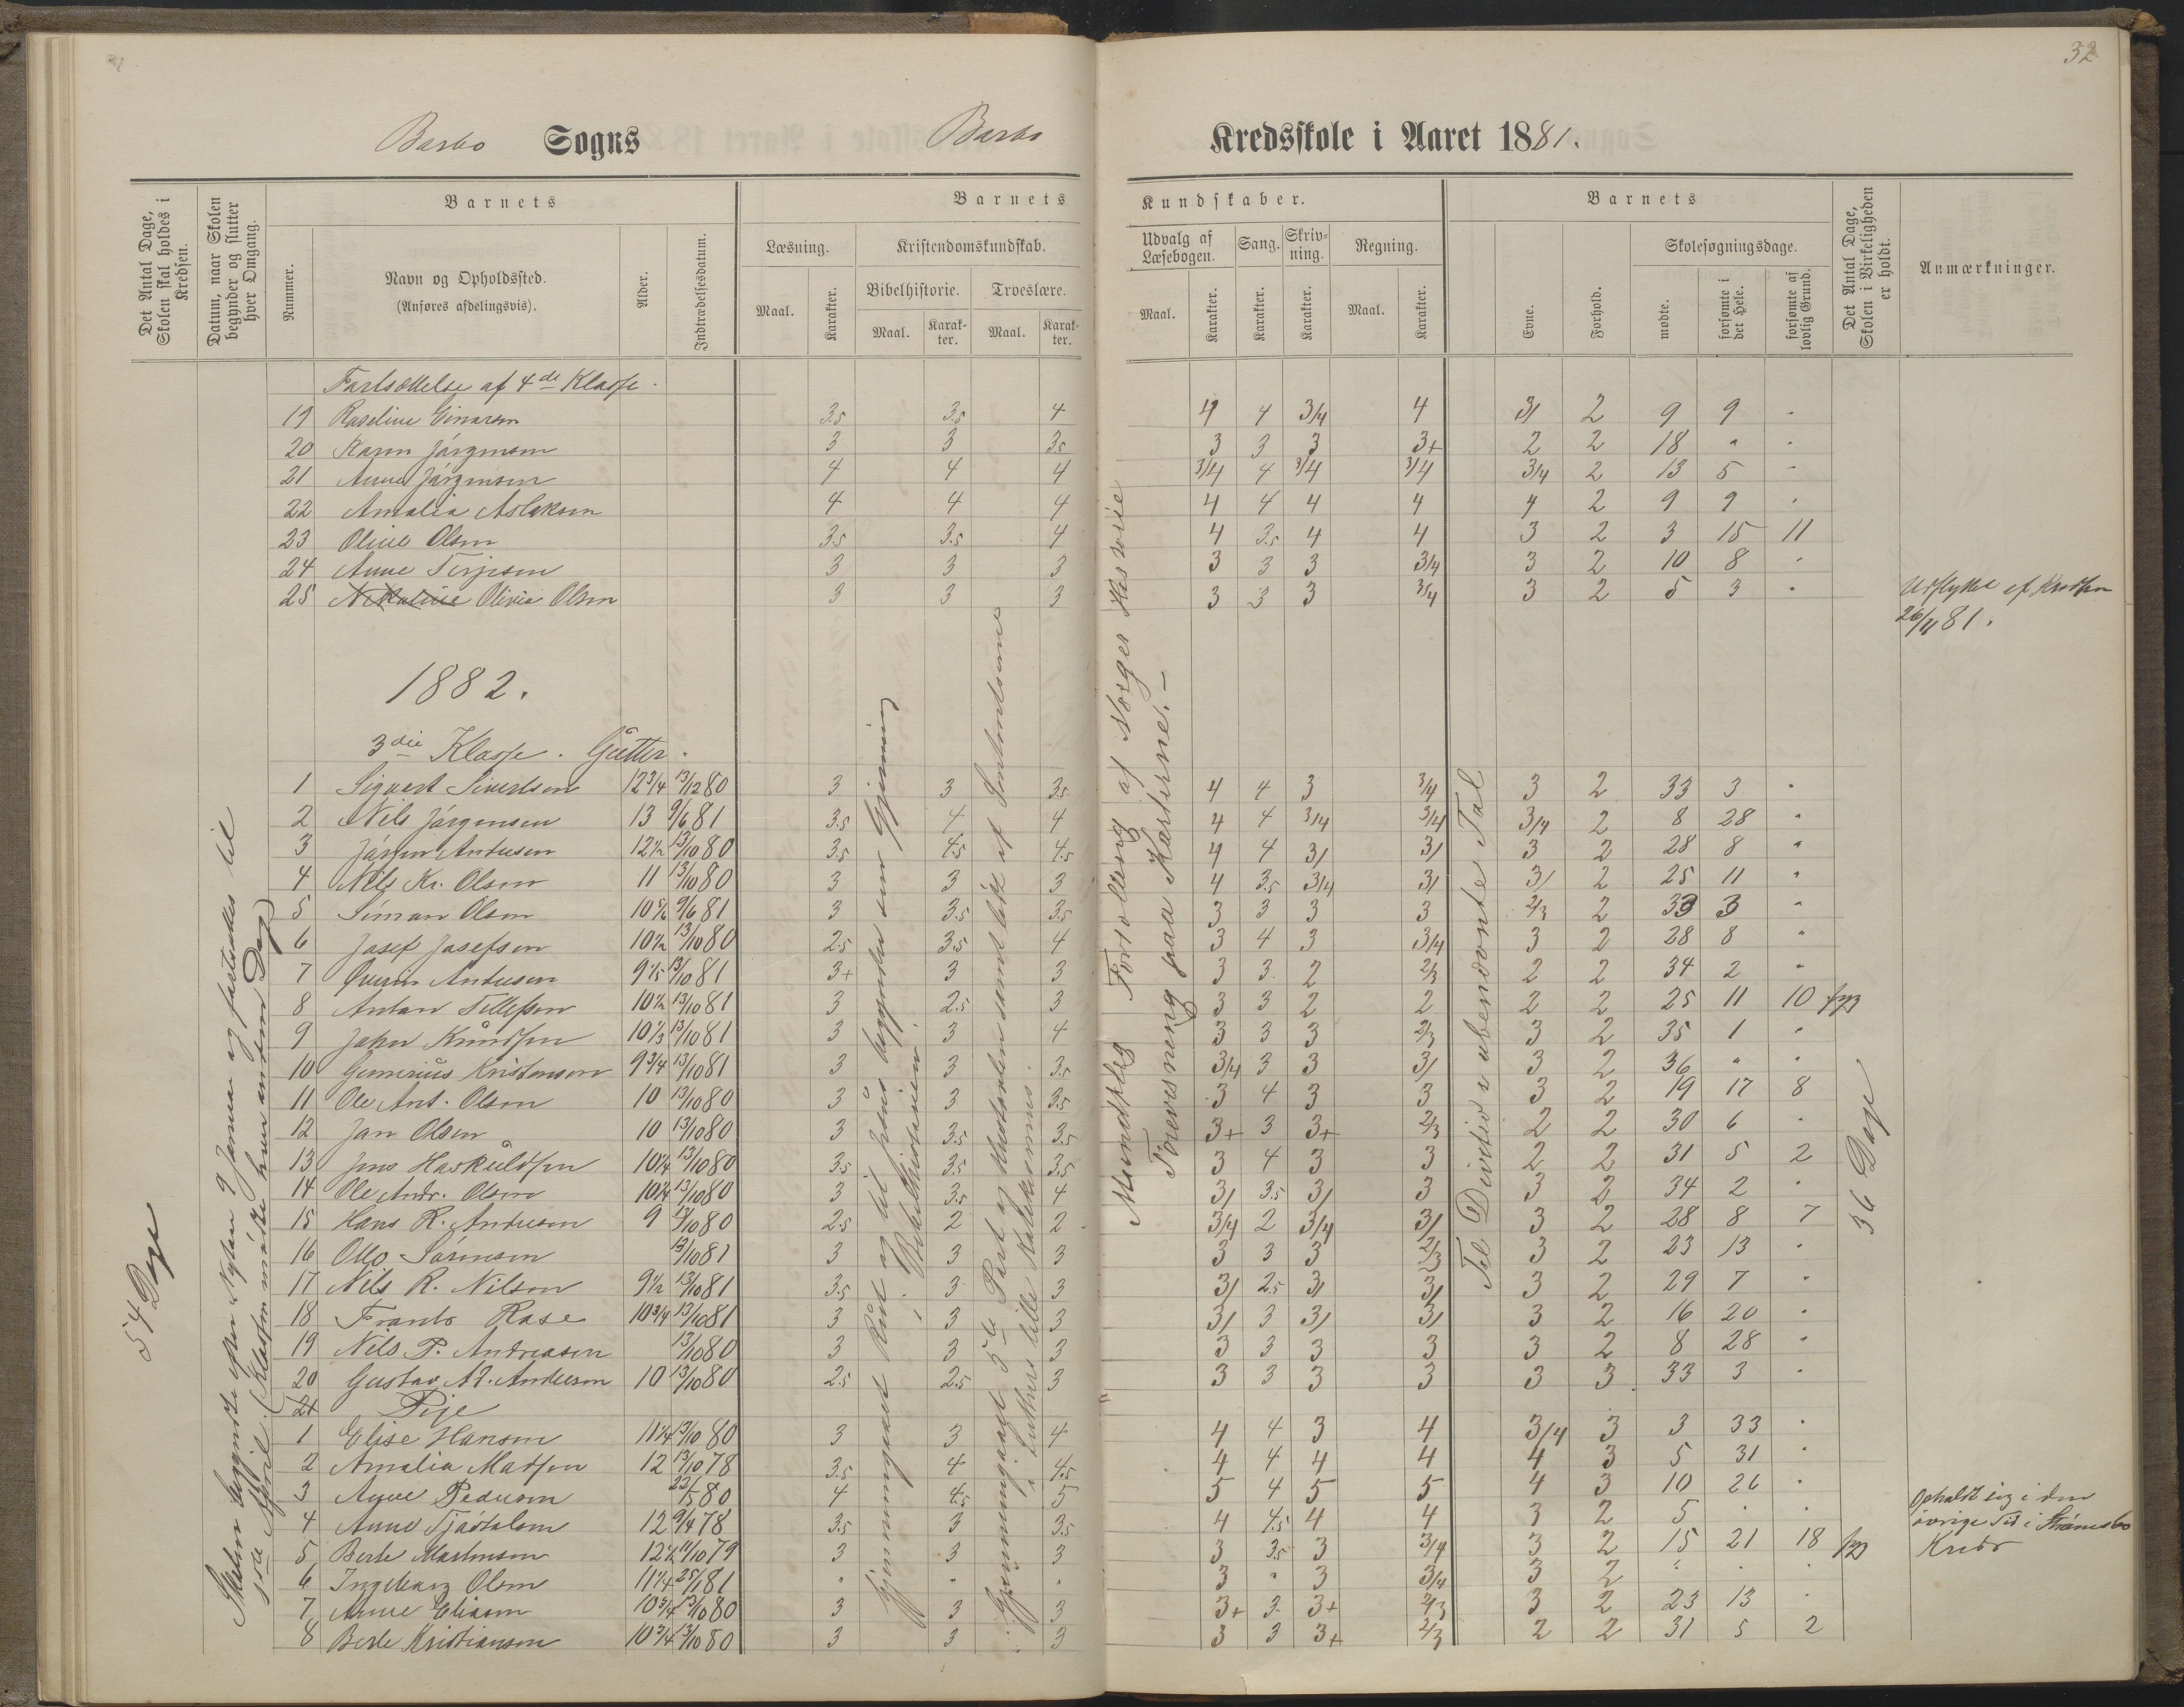 32
Barbo Sogns Barbo Kredsskole i Aaret 1881.
Det Antal Dage, Skolen skal holdes i Kredsen.
Datum, naar Skolen begynder og slutter hver Omgang.
Barnets
Nummer.
Navn og Opholdssted.
(Anføres afdelingsvis).
Alder.
Indtrædelsesdatum.
Barnets Kundskaber.
Læsning.
Maal.
Karakter.
Kristendomskundskab.
Bibelhistorie.
Maal.
Karakter.
Troeslære.
Maal.
Karakter.
Udvalg af Læsebogen.
Maal.
Karakter.
Sang.
Karakter.
Skrivning.
Karakter.
Regning.
Maal.
Karakter.
Barnets
Evne.
Forhold.
Skolesøgningsdage.
mødte.
forsømte i det Hele.
forsømte af lovlig Grund.
Det Antal Dage, Skolen i Virkeligheden er holdt.
Anmærkninger.
Fortsættelse af 4de Klasse.
19 Roseline Einarsen 3.5 3.5 4 4 4 3/4 4 3/ 2 9 9 "
20 Karen Jörgensen 3 3 3.5 3 3 3 3+ 2 2 18 " "
21 Anne Jörgensen 4 4 4 3/4 4 3/4 3/4 3/4 2 13 5 "
22 Amalia Aslaksen 4 4 4 4 4 4 4 4 2 9 9 "
23 Oline Olsen 3.5 3.5 4 4 3.5 4 4 3 2 3 15 11
24 Anne Terjesen 3 3 3 3 3 3 3/4 3 2 10 8 "
25 Olivia Olsen 3 3 3 3 3 3 3/4 3 2 5 3 " Udflyttet af Kredsen
26/11 81.
1882.
3die Klasse. Gutter.
1 Sigvart Sivertsen 12 3/4 13/12 80 3 3 3.5 4 4 3 3/4 3 2 33 3 "
2 Nils Jörgensen 13 9/6 81 3.5 4 4 4 4 3/4 3/4 3/4 2 8 28 "
3 Jörgen Andersen 12 1/2 13/10 80 3.5 4.5 4.5 4 4 3/ 3/ 3 2 28 8 "
4 Nils Kr. Olsen 11 13/10 80 3 3 3 4 3.5 3/4 3/ 3/ 2 25 11 "
5 Simon Olsen 9/6 81 3 3.5 3.5 3 3 3 3 2/3 2 33 3 "
6 Josef Josefsen 10 1/2 13/10 80 2.5 3.5 4 3 4 3 3/4 3 2 28 8 "
7 Andersen 9 1/5 13/10 81 3+ 3 3 3 3 2 2/3 2 2 34 2 "
8 Anton Tellefsen 10 1/2 13/10 81 3 2.5 3 3 3 2 2 2 2 25 11 10
9 John Knudsen 10 1/3 13/10 81 3 3 4 3 3 3 2/3 3 2 35 1 "
10 Gunerius Kristensen 9 3/4 13/10 81 3 3 3.5 3/4 3 3 3/ 3 2 36 " "
11 Ole Ant. Olsen 10 13/10 80 3 3 3.5 3 4 3 3 3 2 19 17 8
12 Jan Olsen 10 13/10 80 3 3.5 3.5 3+ 3 3+ 2/3 2 2 30 6 "
13 Jens Haskuldsen 10 1/4 13/10 80 3.5 3.5 3.5 3 4 3 3 2 2 31 5 2
14 Ole Andr. Olsen 10 1/4 13/10 80 3 3.5 4 3/ 3.5 3/ 3 3 2 34 2 "
15 Hans R. Andersen 9 13/10 80 2.5 2 2 3/4 2 3/4 3/ 3 2 28 8 7
16 Otto Sörensen 13/10 81 3 3 3 3 3 3 2/3 3 2 23 13 "
17 Nils R. Nilsen 9 1/2 13/10 81 3.5 3 3 3/ 2.5 3/ 3/ 3 2 29 7 "
18 Frants Rose 10 3/4 13/10 81 3 3 3 3/ 3 3/ 3/ 3 2 16 20 "
19 Nils P. Andreasen 13/10 80 3 3 3 3 3 3 3 3 2 8 28 "
20 Gustav Ad. Andersen 10 13/10 80 2.5 2.5 3 3 3 3 3 3 3 33 3 "
21 Pige
1 Elise Hansen 11 1/4 13/10 80 3 3 4 4 4 3 4 3/4 3 3 33 "
2 Amalia Madsen 12 13/10 78 3.5 4 4.5 4 4 4 4 4 3 5 31 "
3 Anne Pedersen 22/5 80 4 4.5 5 5 4 5 5 4 3 10 26 "
4 Anne Tjöstolsen 12 9/4 78 3.5 3 3.5 4 4.5 4 4 3 2 5 " " Opholdt sig i den övrige Tid i Strömsbo Kreds
5 Berte Martinsen 11/10 79 3 3 3 3 3.5 3 3/4 3 2 15 21 18
6 Ingeborg Olsen 11 1/4 25/1 81 " " " 3 " 3 3/4 3 2 " " "
7 Anne Eliasen 10 3/4 13/10 80 3 3 3 3+ 3 3+ 2/3 3 2 23 13 "
8 Berte Kristiansen 10 3/4 13/10 80 3 3 3 3 3 3+ 2/3 2 2 31 5 2
54 Dage
Skolen begyndte efter Nytaar 9 Januar og fortsattes til
1ste April. (Klassen mødte hver anden Dag)
Gjennemgaaet Rut og til Jesus begynder sin Gjerning
i Bibelhistorien
Gjennemgaaet 5te Part og Underarten samt lidt af Smitoutsnes
i Luthers lille Katekismus.
Mundtlig Fortælling af Norges Historie
Foreviisning paa Karterne.
Til Division i ubenævnte Tal
36 Dage